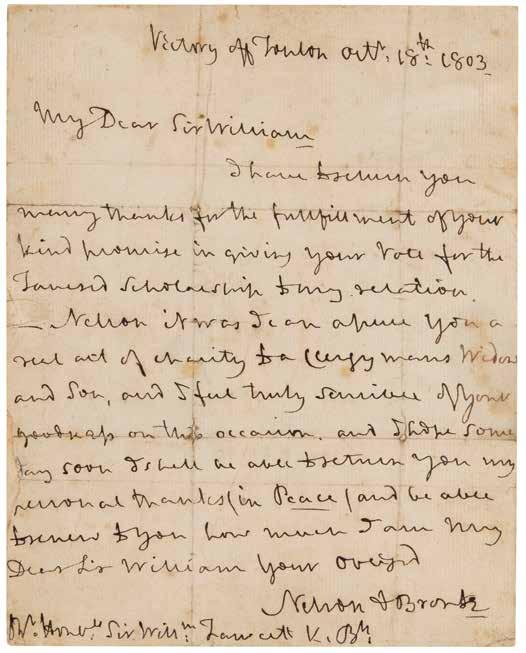 Victory off Toulon Octr. 18th: 1803
My Dear Sir William
I have to return you
many thanks for the fullfillment of your
kind promise in giving your Vote for the
Tancred Scholarship to my relation
— Nelson it was I can assure you a
real act of charity to a Clergymans Widow
and Son, and I feel truly sensible of your
goodness on this occasion. and I hope some
day soon I shall be able to return you my
personal thanks (in Peace) and be able
to renew to you how much I am My
Dear Sir William Your Oblig'd
Nelson & Bronte
Rt. Honble. Sir Willm. Fawcett K. Bh.